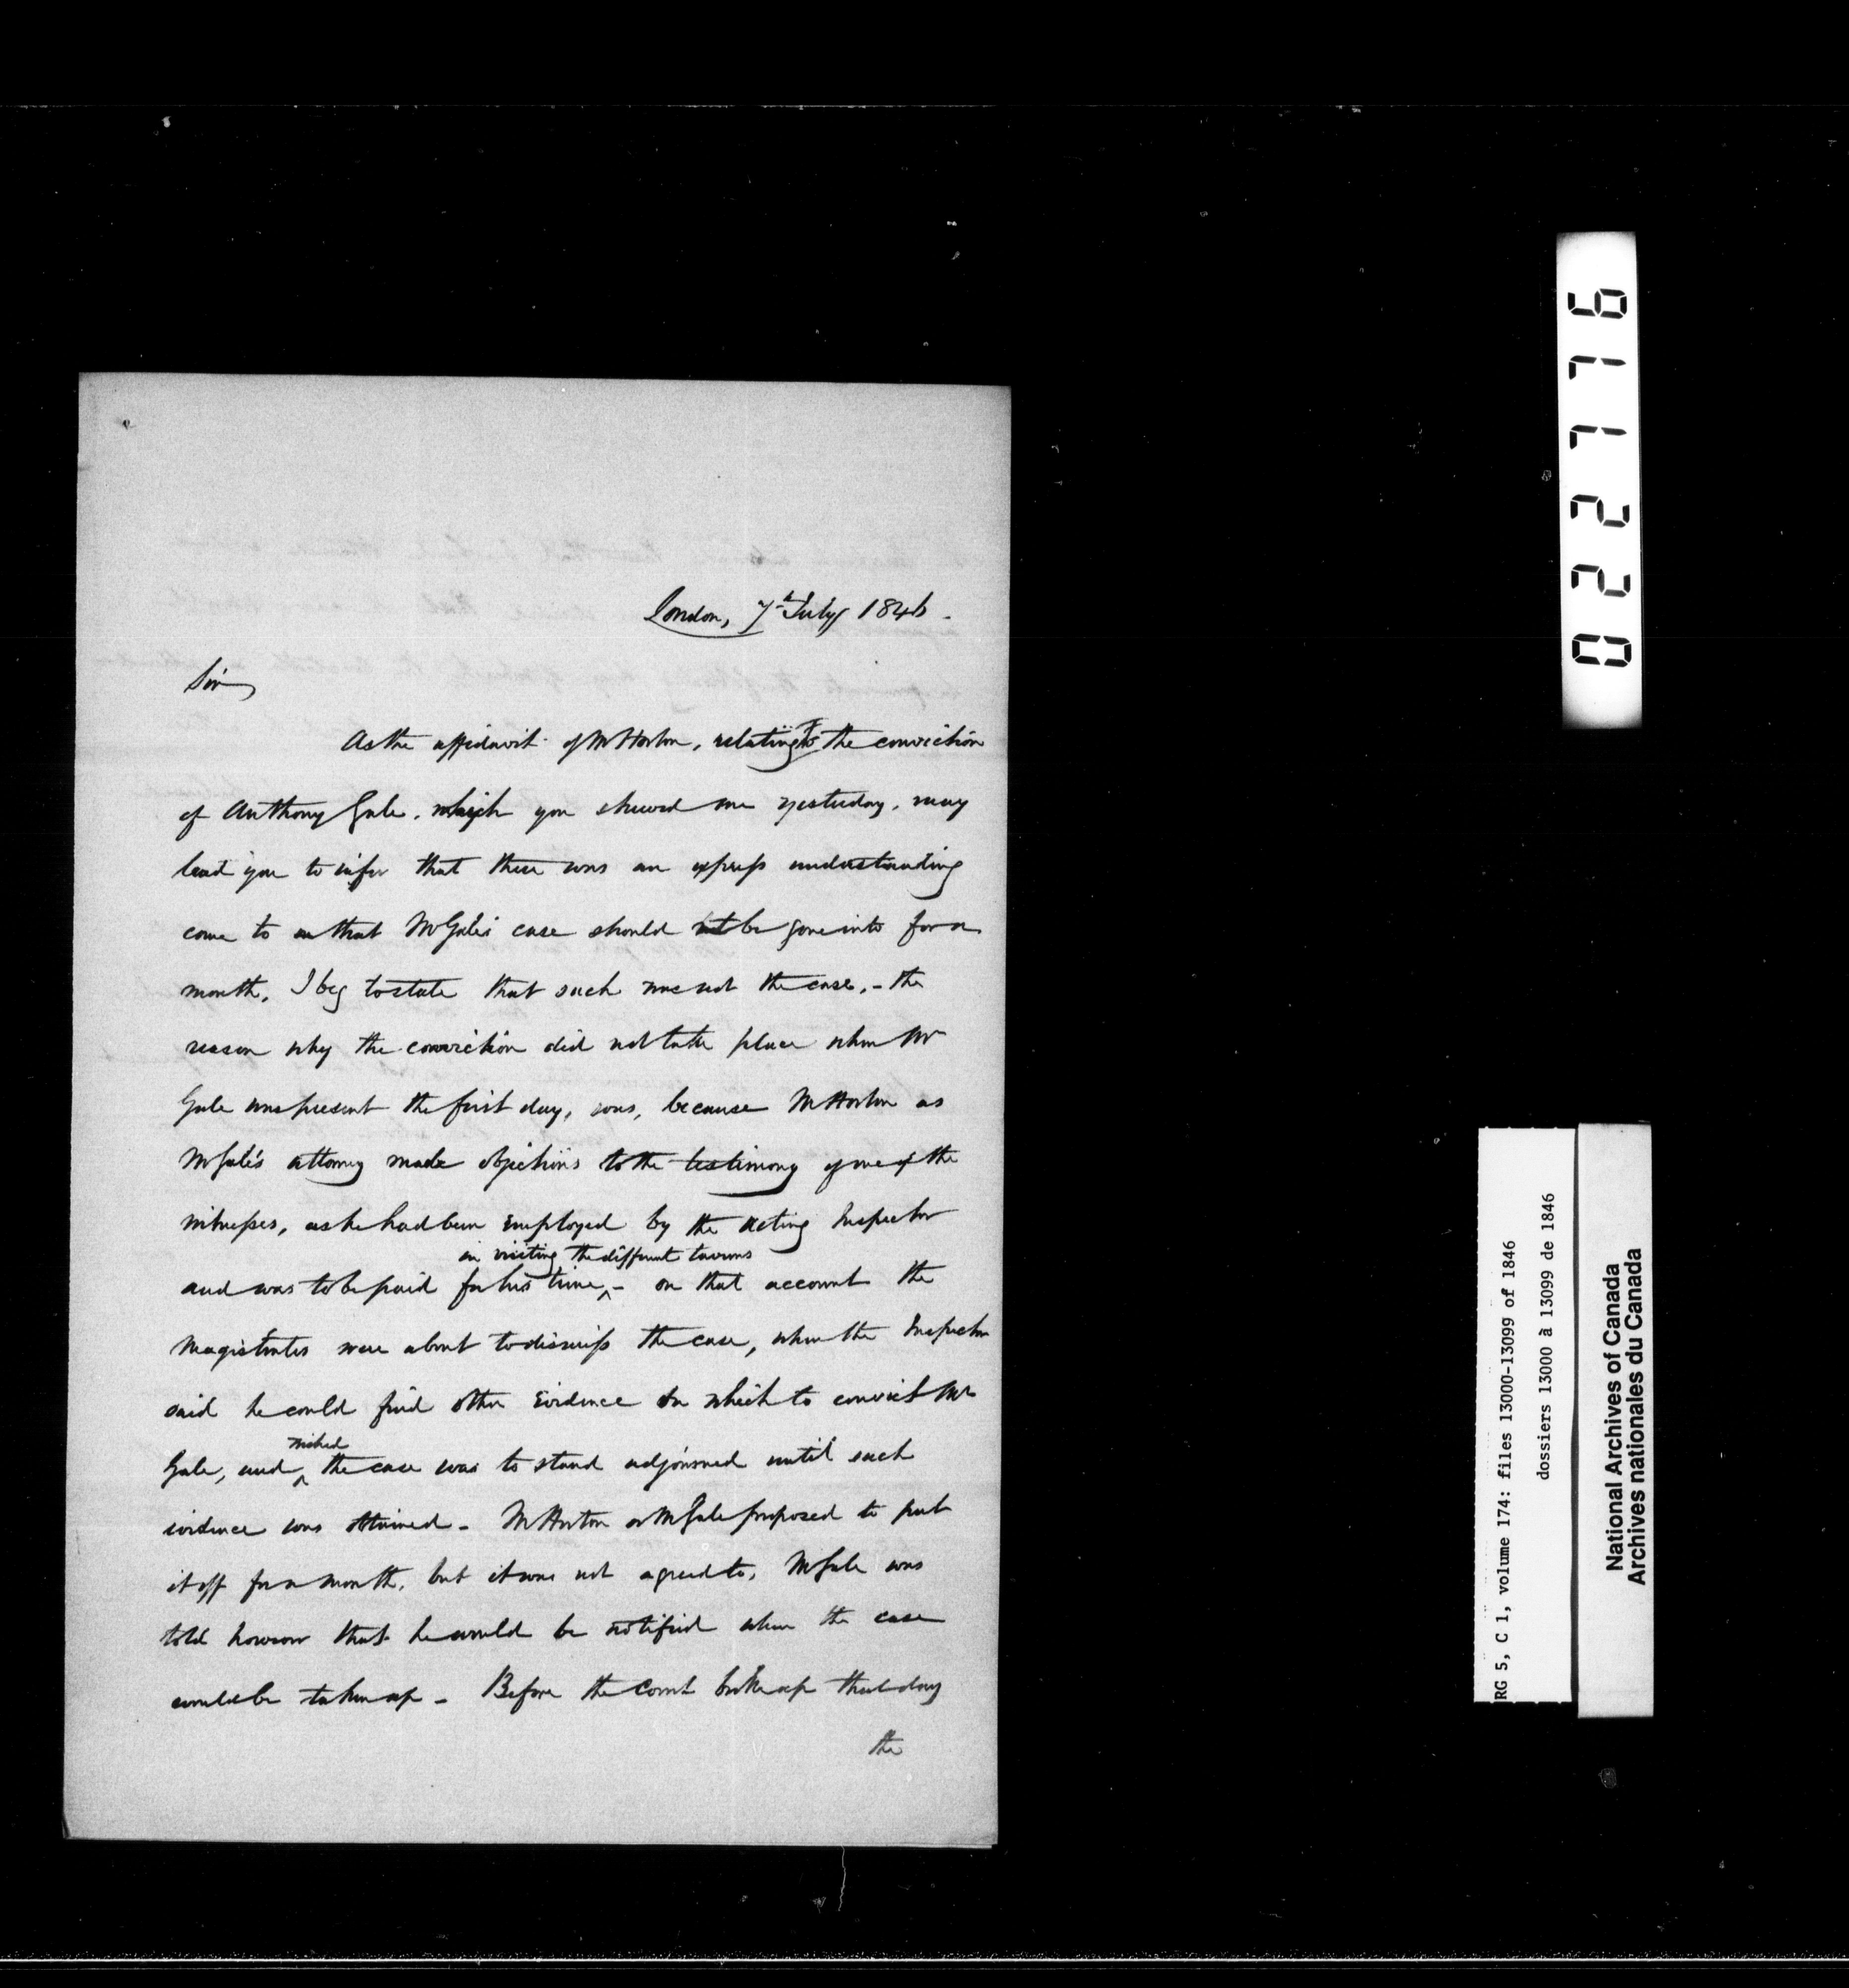 London, 7th July 1846.
Sir
As the affidavit of Mr Horton, relating to the conviction
of Anthony Gale, which you shewed me yesterday, may
lead you to infer that there was an express understanding
come to that Mr Gale's case should not be gone into for a
month, I beg to state that such was not the case, - the
reason why the conviction did not take place when Mr
Gale was present the first day, was, because Mr Horton as
Mr Gale's attorney made objections to the testimony of one of the
witnesses, as he had been employed by the acting Inspector
and was to be paid for his time ^ in visiting the different taverns - on that account the
Magistrates were about to dismiss the case, when the Inspector
said he could find other evidence on which to convict Mr
Gale, and ^ wished the case was to stand adjourned until such
evidence was obtained - Mr Horton or Mr Gale proposed to put
it off for a month, but it was not agreed to, Mr Gale was
told however that he would be notified when the case
would be taken up - Before the Court broke up that day
the
022776
RG 5, C 1, volume 174: files 13000-13099 of 1846
dossiers 13000 à 13099 de 1846
National Archives of Canada
Archives nationales du Canada